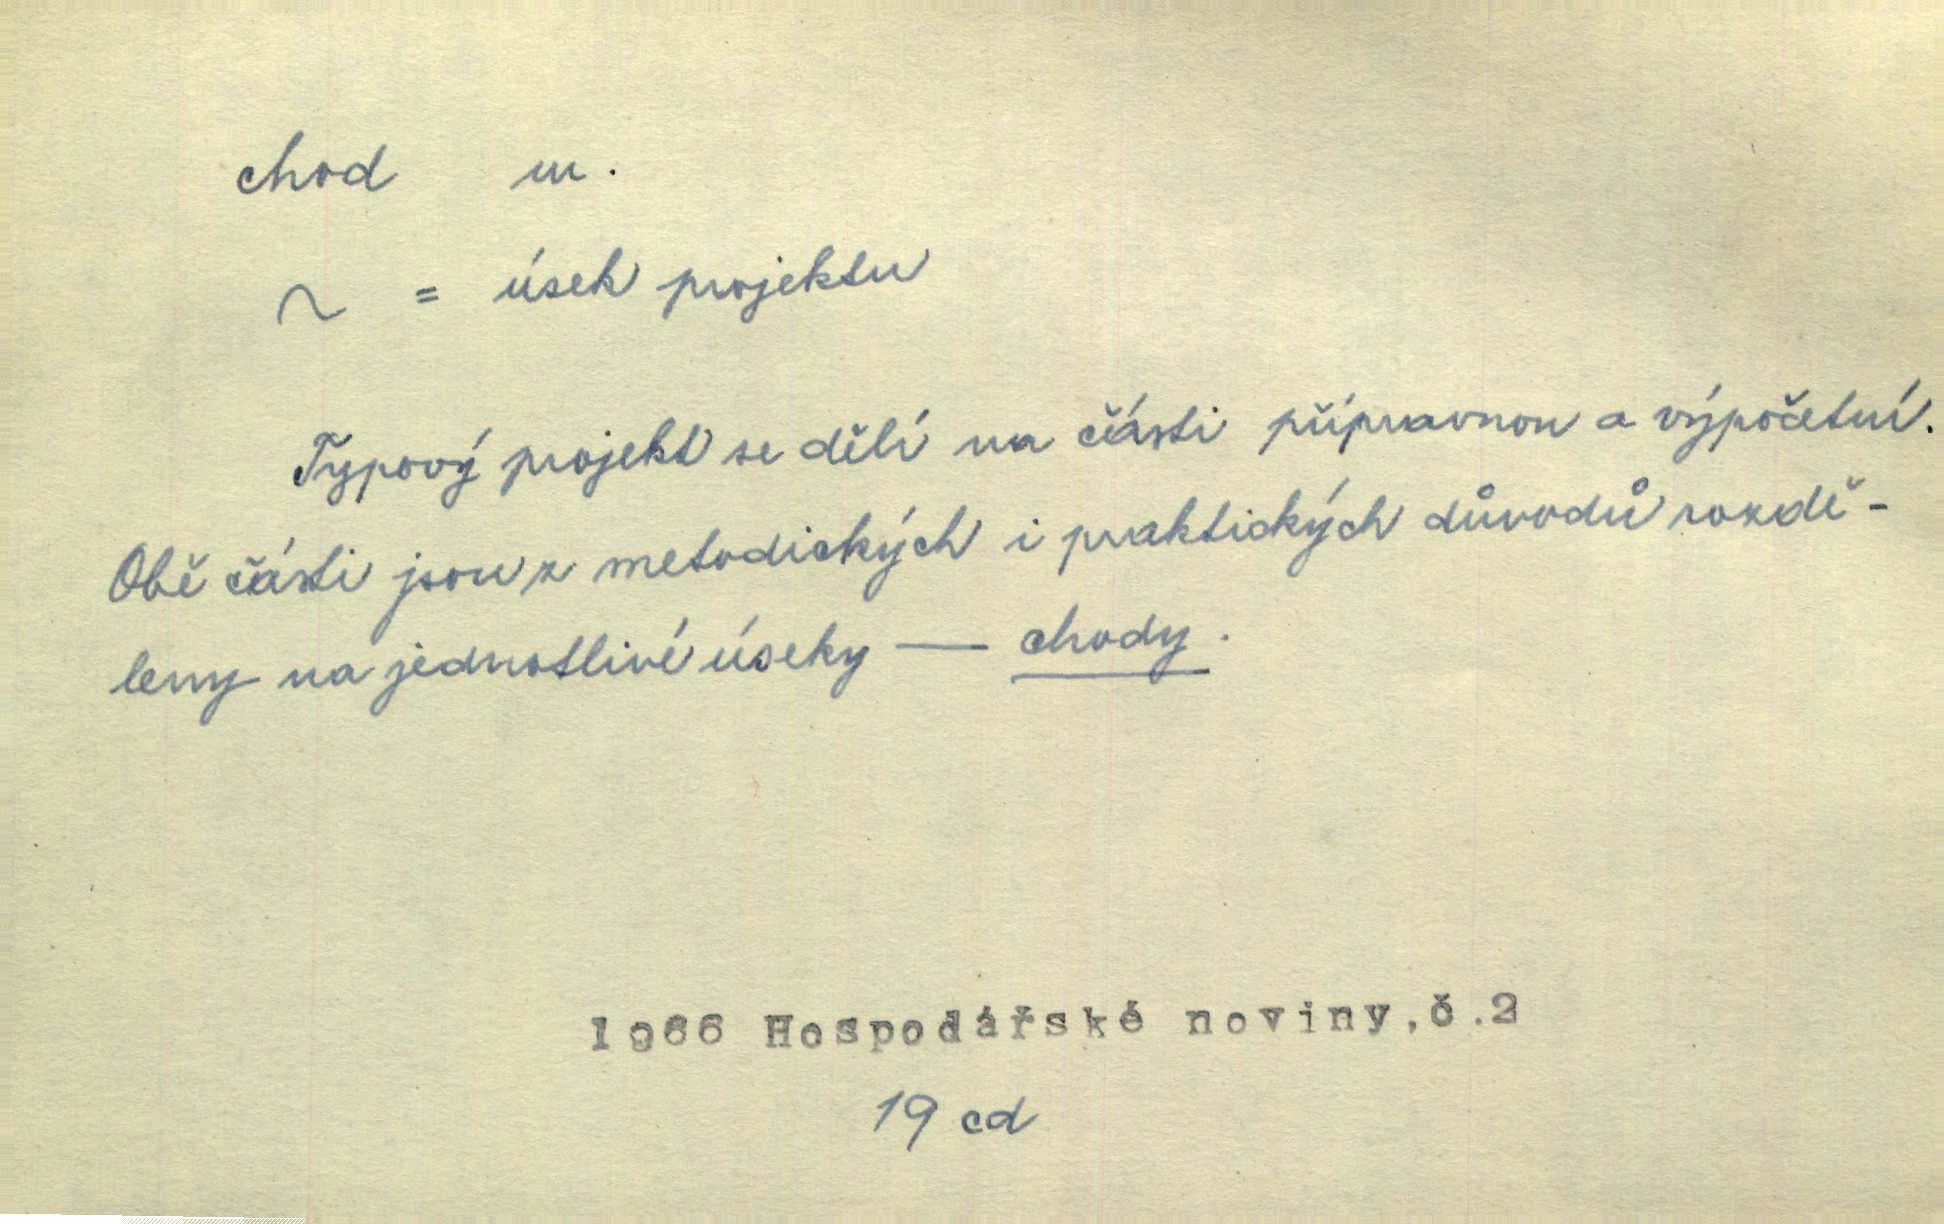 chod m.
~ = úsek projektu
Typový projekt se dělí na části přípravnou a výpočetní.
Obě části jsou z metodických i praktických důvodů rozdě-
leny na jednotlivé úseky — chody.
1966 Hospodářské noviny,č.2
19 cd